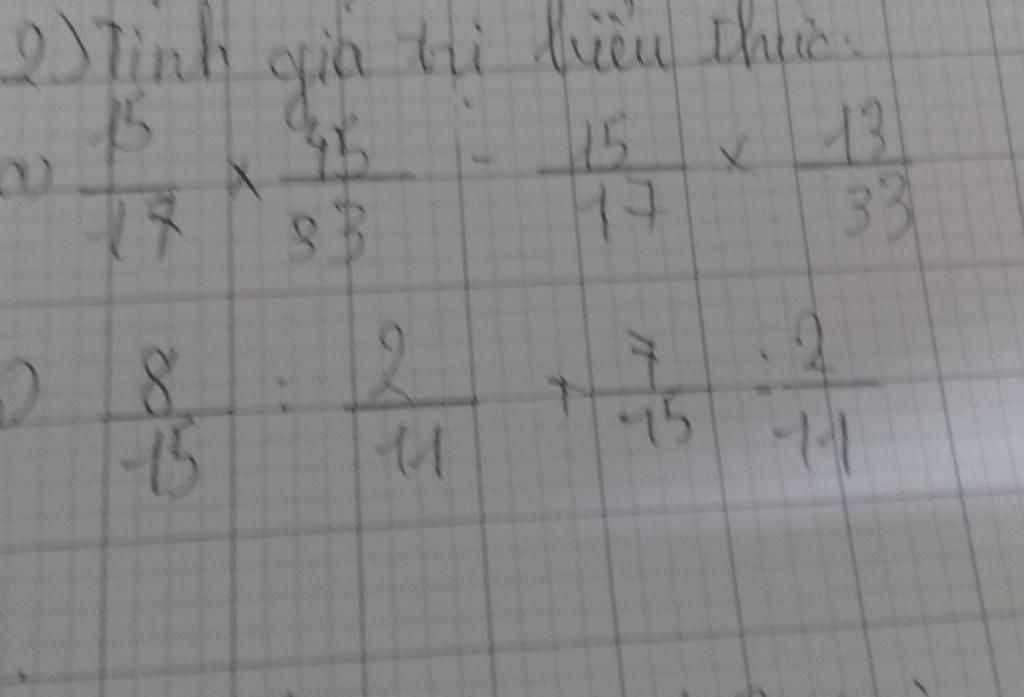 2) Tính giá trị biểu thức.
a) 15/17 × 45/33 - 15/17 × 13/33
) 8/15 : 2/11 + 7/15 : 2/11